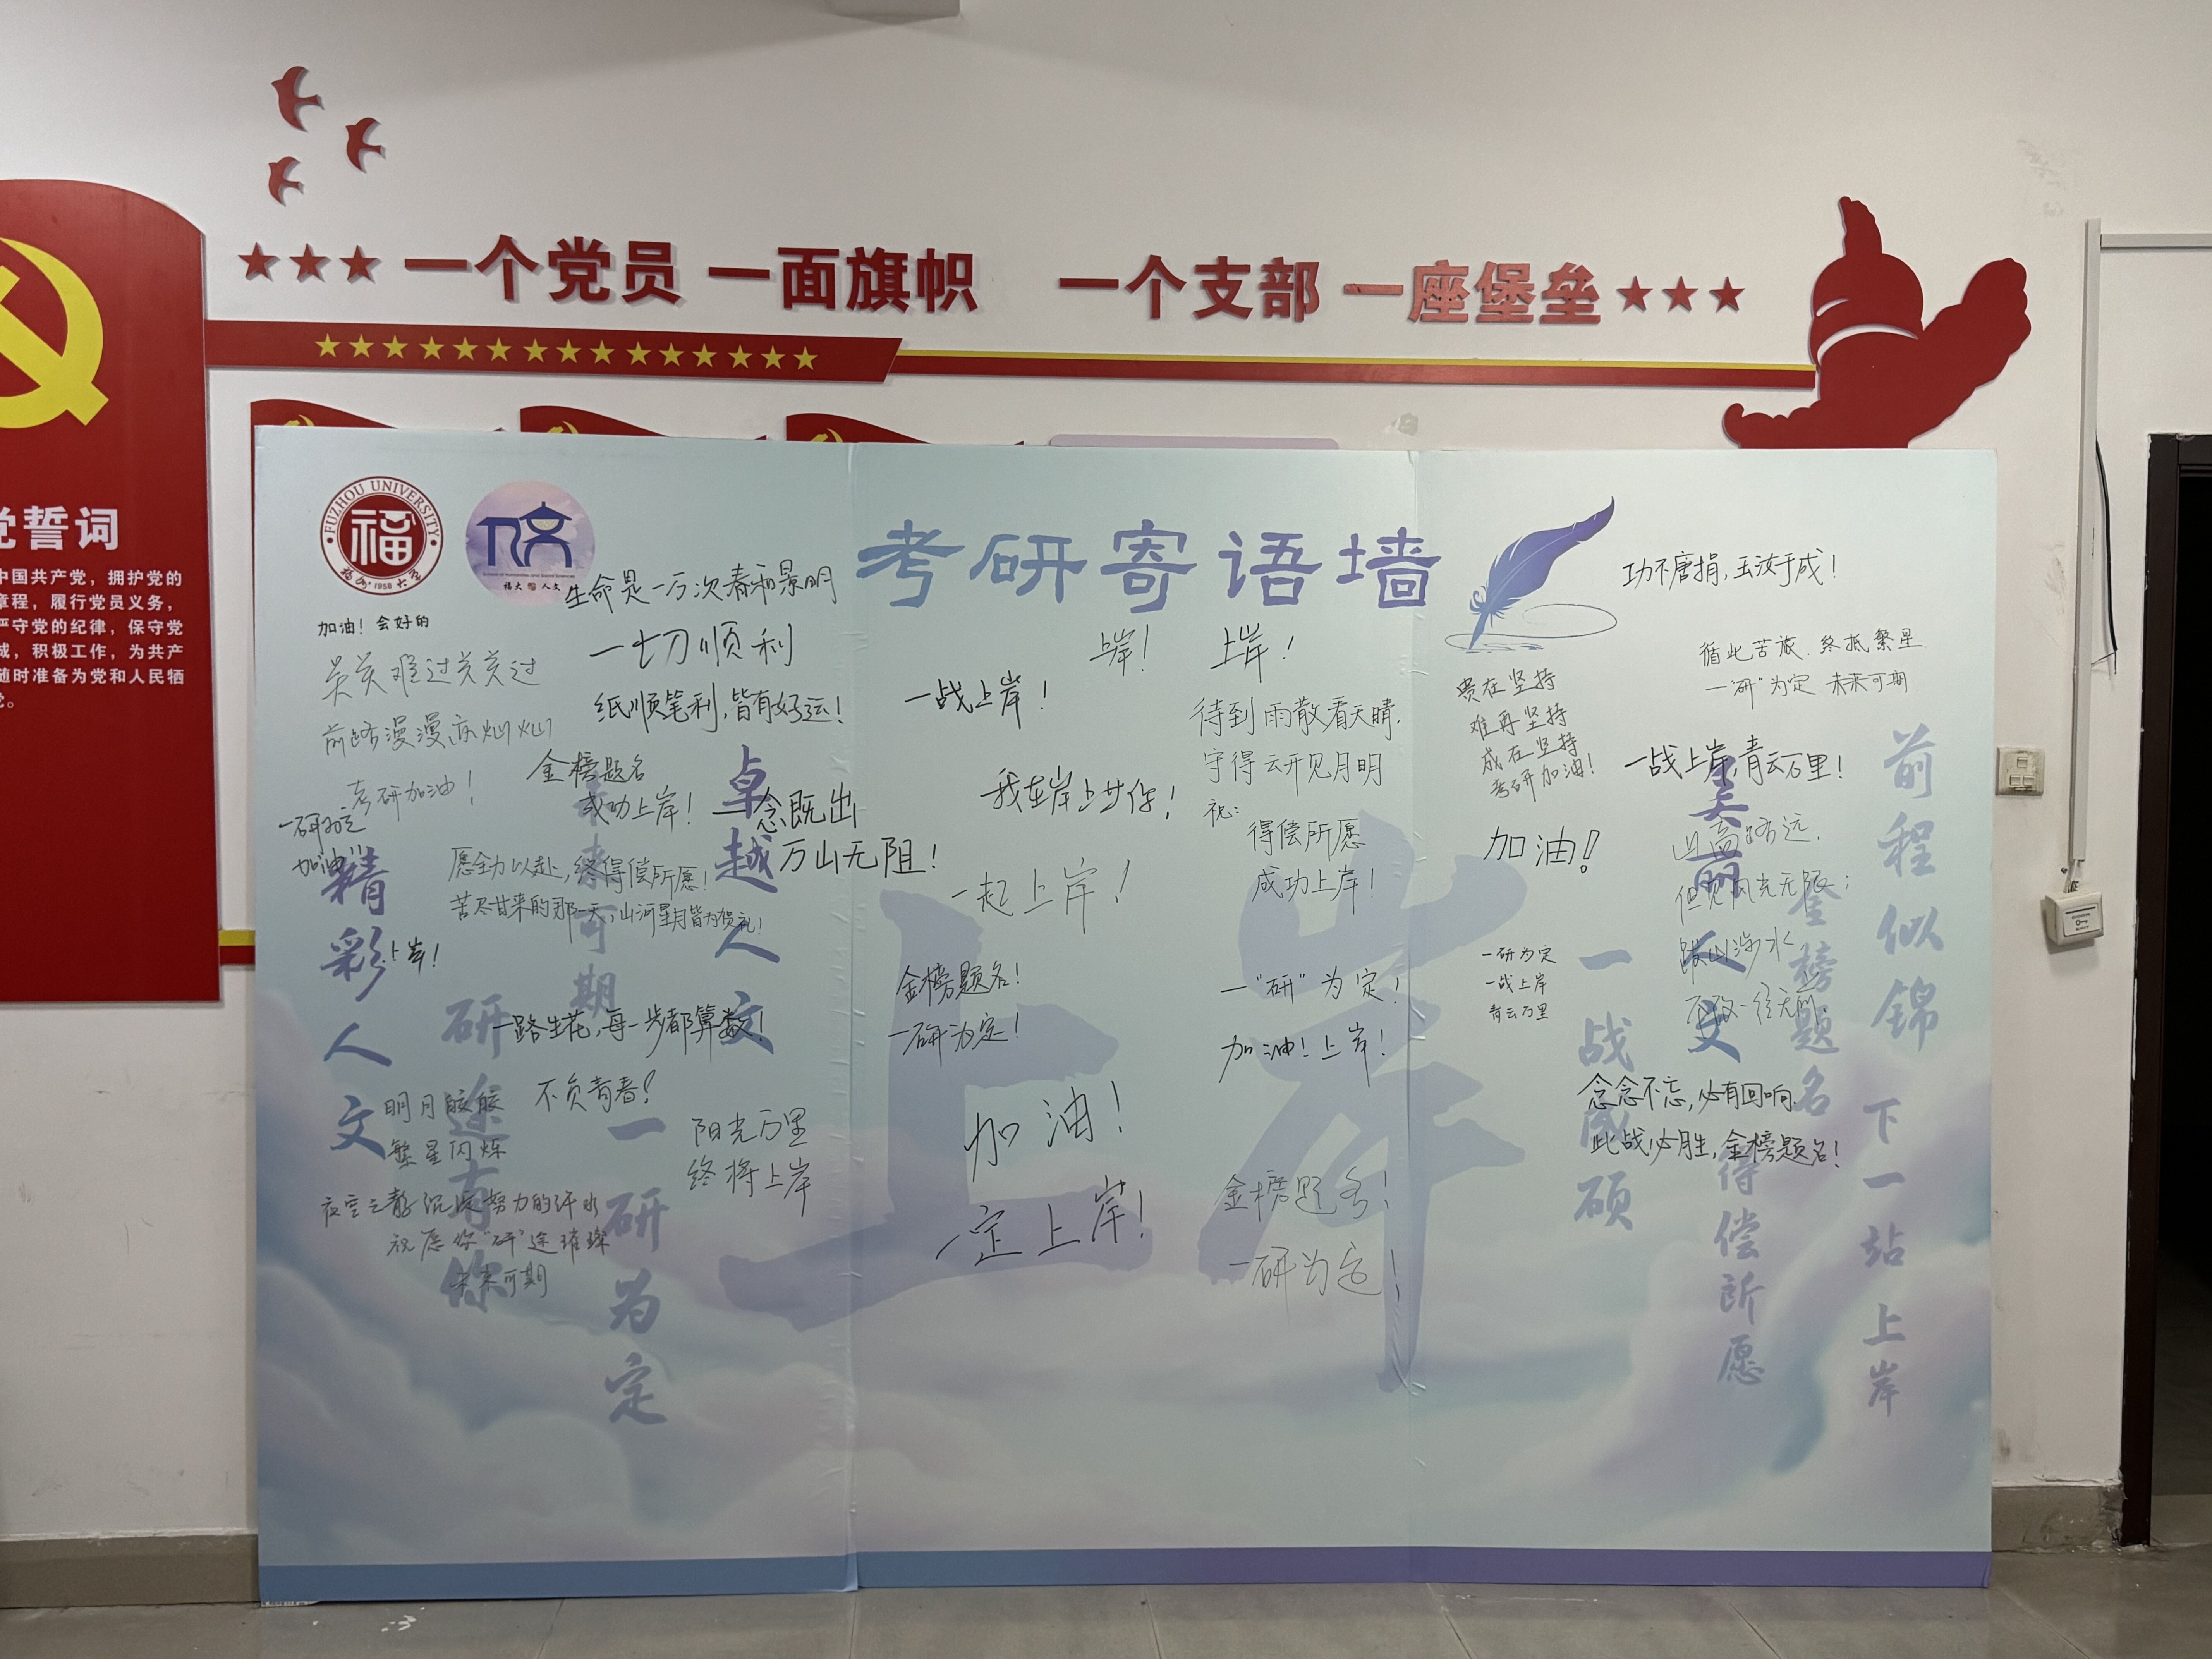 一个党员 一面旗帜 一个支部 一座堡垒
誓词
中国共产党，拥护党的
章程，履行党员义务，
严守党的纪律，保守党
诚，积极工作，为共产
随时准备为党和人民牺
党。
FUZHOU UNIVERSITY
福
福州 1958 大学
School of Humanities and Social Sciences
福大 人文
考研寄语墙
加油！会好的
关关难过关关过
前路漫漫亦灿灿
考研加油！
一研为定
加油！！
生命是一万次春和景明
一切顺利
纸顺笔利，皆有好运！
金榜题名
成功上岸！
一念既出
万山无阻！
愿全力以赴，终得偿所愿！
苦尽甘来的那一天，山河星月皆为贺礼！
上岸！
一路生花，每一步都算数！
不负青春！
明月皎皎
繁星闪烁
夜空之静沉淀努力的汗水
祝愿你“研”途璀璨
未来可期
阳光万里
终将上岸
精彩人文
研途有你
未来可期
一研为定
卓越人文
上岸
上岸！
上岸！
一战上岸！
我在岸上等你！
一起上岸！
金榜题名！
一研为定！
加油！
一定上岸！
待到雨散看天晴，
守得云开见月明
祝：
得偿所愿
成功上岸！
一“研”为定！
加油！上岸！
金榜题名！
一研为定！
功不唐捐，玉汝于成！
循此苦旅，终抵繁星
一“研”为定 未来可期
贵在坚持
难再坚持
成在坚持
考研加油！
一战上岸，青云万里！
加油！
山高路远，
但见风光无限；
跋山涉水
不改一往无前。
一研为定
一战上岸
青云万里
念念不忘，必有回响。
此战必胜，金榜题名！
一战成硕
美丽人文
得偿所愿
金榜题名
前程似锦
下一站上岸